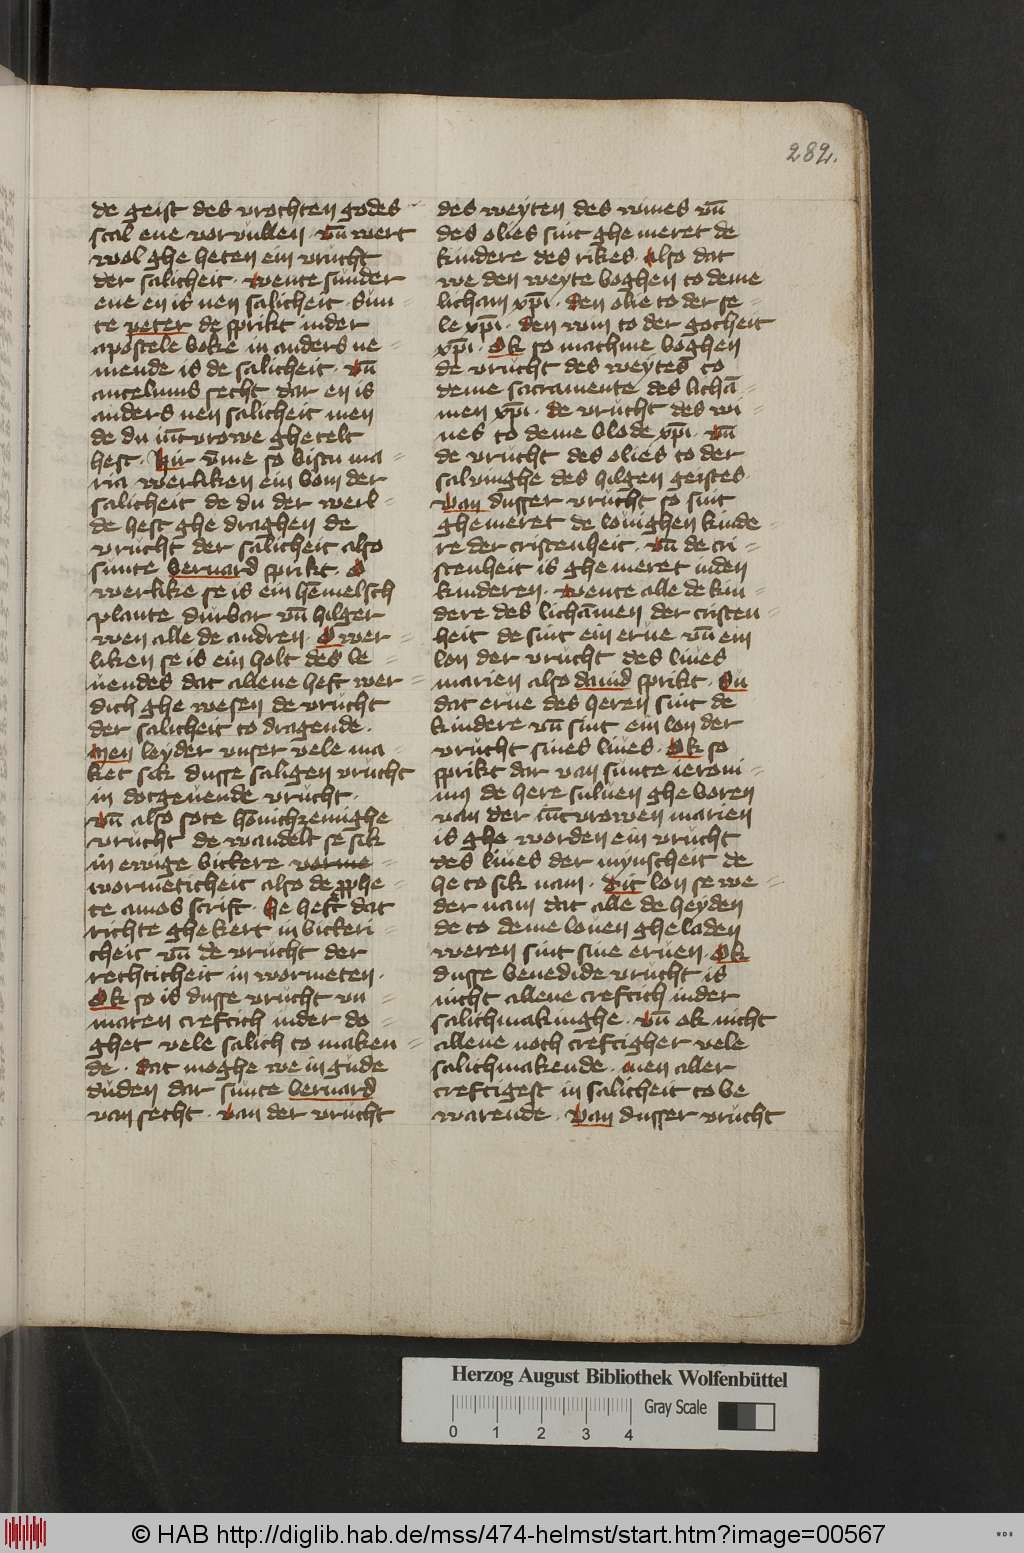 282.
de geist des vrochten godes
scal ene vorvullen · vn̄ wert
wol ghe heten ein vrucht
der salicheit · wente sunder
ene en is nen salicheit · sun=
te peter de sprikt inder
apostele boke in anders ne=
mende is de salicheit · vn̄
ancelmus secht dar en is
anders nen salicheit men
de du iūcvrowe ghetelt
hest · Hir v̄me so bistu ma=
ria werliken ein bom der
salicheit de du der werl=
de hest ghe draghen de
vrucht der salicheit also
sunte bernard sprikt · O
werlike se is ein hēmelsch
plante durbar vn̄ hilger
wen alle de andren · O wer=
liken se is ein holt des le=
uendes dat allene heft wer=
dich ghe wesen de vrucht
der salicheit to dragende ·
Men leyder vnser vele ma=
ket sik dusse saligen vrucht
in dotgeuende vrucht ·
vn̄ also sote hōnichzemighe
vrucht de wandelt se sik
in ewige bickere vorme=
wormeticheit also de ꝓphe=
te amos scrift · he heft dat
richte ghekert in bickeri=
cheit vn̄ de vrucht der
rechticheit in wormeten ·
Ok so is dusse vrucht vn=
maten creftich inder do=
ghet vele salich to maken=
de · dat moghe we in gude
duden dar sunte bernard
van secht · van der vrucht
des weyten des wines vn̄
des olies sint ghe meret de
kindere des rikes · Also dat
we den weyte boghen to deme
licham xp̄i · den olie to der se=
le xp̄i · den win to der gotheit
xp̄i · Ok so mach me boghen
de vrucht des weytes to
deme sacramente des lichā=
men xp̄i · de vrucht des wi=
nes to deme blode xp̄i · vn̄
de vrucht des olies to der
salvinghe des hilgen geistes ·
Van dusser vrucht so sint
ghemeret de louighen kinde=
re der cristenheit · vn̄ de cri=
stenheit is ghe meret inden
kinderen · wente alle de kin=
dere des lichāmen der cristen=
heit de sint ein erue vn̄ ein
lon der vrucht des liues
marien also dauid sprikt · Su
dat erue des heren sint de
kindere vn̄ sint ein lon der
vrucht sines liues · Ok so
sprikt dar van sunte ieroni=
mꝯ de here suluen ghe boren
van der iūcvrowen marien
is ghe worden ein vrucht
des liues der mynscheit de
he to sik nam · Dit lon se we=
der nam dat alle de heyden
de to deme louen gheladen
weren sint sine eruen · Ok
dusse benedide vrucht is
nicht allene creftich inder
salichmakinghe · vn̄ ok nicht
allene noch creftigher vele
salichmakende · men aller
creftigest in salicheit to be
warende · Van dusser vrucht
Herzog August Bibliothek Wolfenbüttel
0 1 2 3 4
Gray Scale
© HAB http://diglib.hab.de/mss/474-helmst/start.htm?image=00567